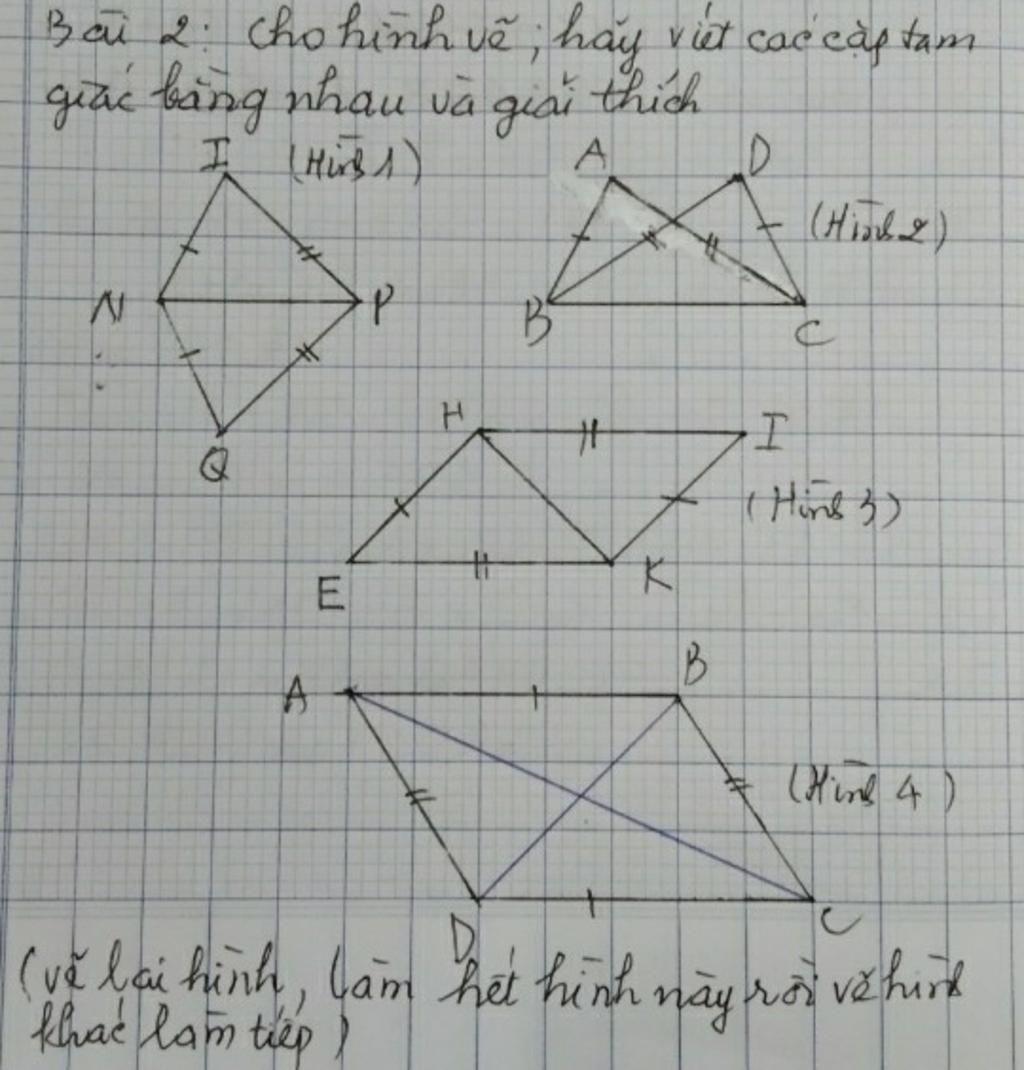 Bài 2: Cho hình vẽ, hãy viết các cặp tam
giác bằng nhau và giải thích
I (Hình 1)
A D
N P
(Hình 2)
B C
Q
H I
(Hình 3)
E K
A B
(Hình 4)
D C
(vẽ lại hình, làm hết hình này rồi vẽ hình
khác làm tiếp)